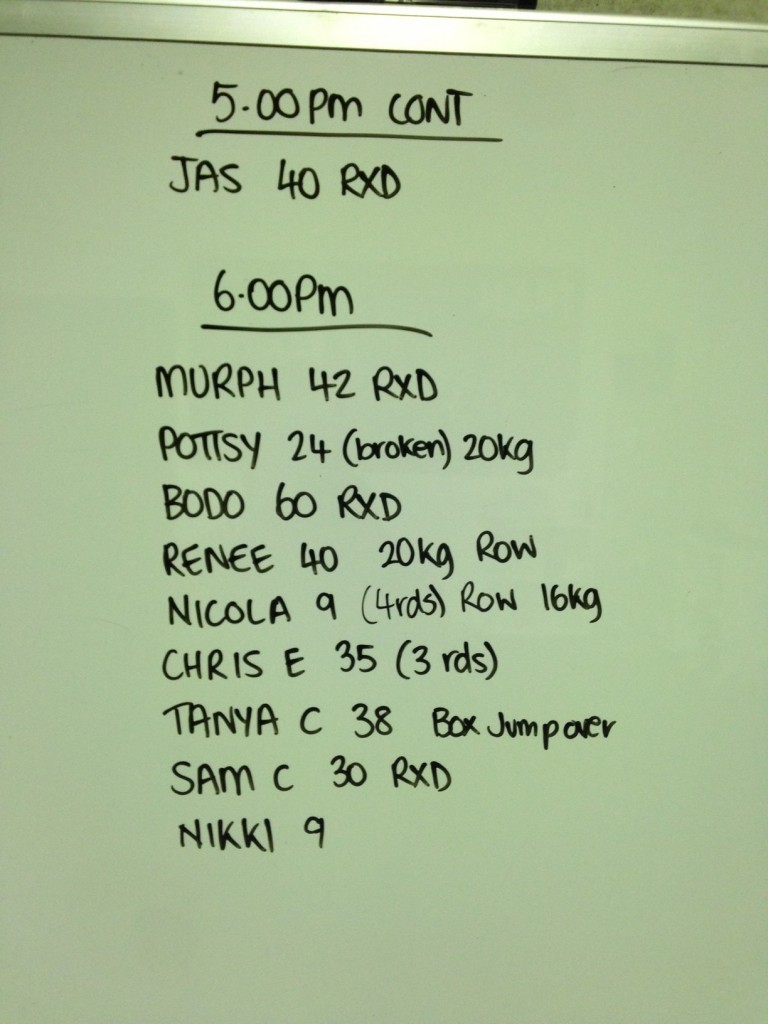 5.00PM CONT
JAS 40 RXD
6.00PM
MURPH 42 RXD
POTTSY 24 (broken) 20kg
BODO 60 RXD
RENEE 40 20kg ROW
NICOLA 9 (4rds) ROW 16kg
CHRIS E 35 (3 rds)
TANYA C 38 Box Jump over
SAM C 30 RXD
NIKKI 9